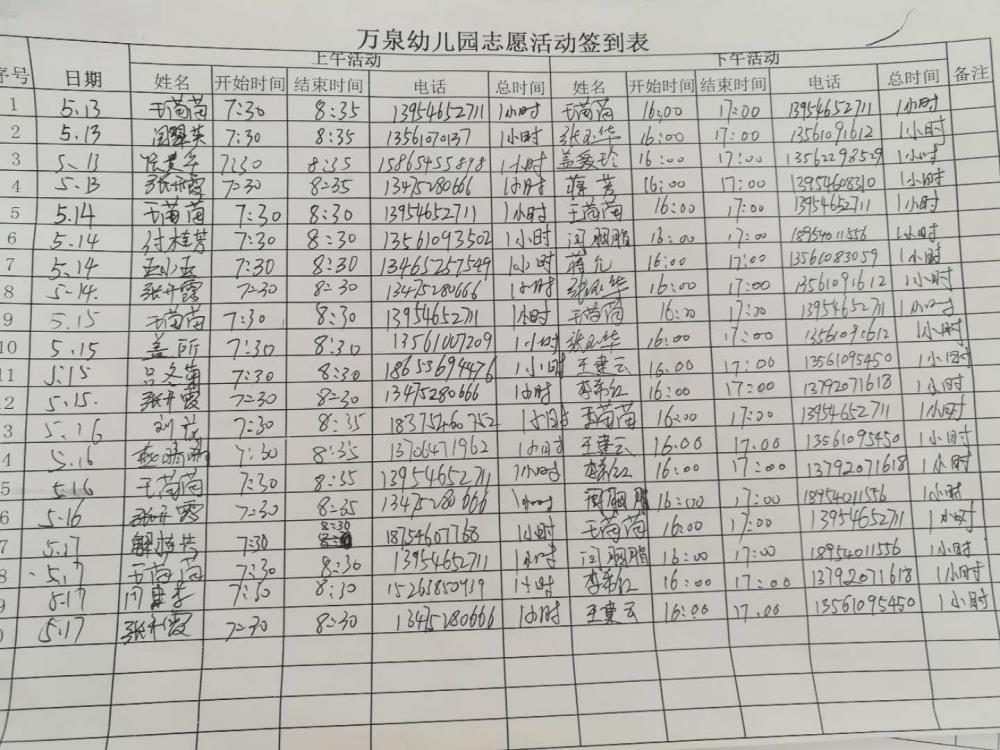 万泉幼儿园志愿活动签到表
序号 日期 上午活动 下午活动 备注
姓名 开始时间 结束时间 电话 总时间 姓名 开始时间 结束时间 电话 总时间
1 5.13 王茼茼 7:30 8:35 13954652711 1小时 王茼茼 16:00 17:00 13954652711 1小时
2 5.13 闫翠英 7:30 8:35 13561070137 1小时 张凤华 16:00 17:00 13561091612 1小时
3 5.13 7:30 8:35 15865455898 1小时 盖爱珍 16:00 17:00 13562298529 1小时
4 5.13 张开霞 7:30 8:35 13475280666 1小时 蒋芳 16:00 17:00 13954608310 1小时
5 5.14 王茼茼 7:30 8:30 13954652711 1小时 王茼茼 16:00 17:00 13954652711 1小时
6 5.14 付桂芳 7:30 8:30 13561093502 1小时 闫胭脂 16:00 17:00 18954011556 1小时
7 5.14 王小玉 7:30 8:30 13465257549 1小时 蒋允 16:00 17:00 13561083059 1小时
8 5.14. 张开霞 7:30 8:30 13475280666 1小时 张凤华 16:00 17:00 13561091612 1小时
9 5.15 王茼茼 7:30 8:30 13954652711 1小时 王茼茼 16:00 17:00 13954652711 1小时
10 5.15 盖所 7:30 8:30 13561007209 1小时 张凤华 16:00 17:00 13561091612 1小时
11 5.15 吕冬菊 7:30 8:30 18653694476 1小时 王建云 16:00 17:00 13561095450 1小时
12 5.15. 张开霞 7:30 8:30 13475280666 1小时 李希红 16:00 17:00 13792071618 1小时
3 5.16 刘 7:30 8:35 18375260752 1小时 王茼茼 16:00 17:00 13954652711 1小时
4 5.16 7:30 8:35 13706471962 1小时 王建云 16:00 17:00 13561095450 1小时
5 5.16 王茼茼 7:30 8:35 13954652711 1小时 李希红 16:00 17:00 13792071618 1小时
6 5.16 张开霞 7:30 8:35 13475280666 1小时 闫胭脂 16:00 17:00 18954011556 1小时
7 5.17 解桂芳 7:30 8:30 18754607768 1小时 王茼茼 16:00 17:00 13954652711 1小时
8 5.17 王茼茼 7:30 8:30 13954652711 1小时 闫胭脂 16:00 17:00 18954011556 1小时
9 5.17 7:30 8:30 15265850939 1小时 李希红 16:00 17:00 13792071618 1小时
0 5.17 张开霞 7:30 8:30 13475280666 1小时 王建云 16:00 17:00 13561095450 1小时